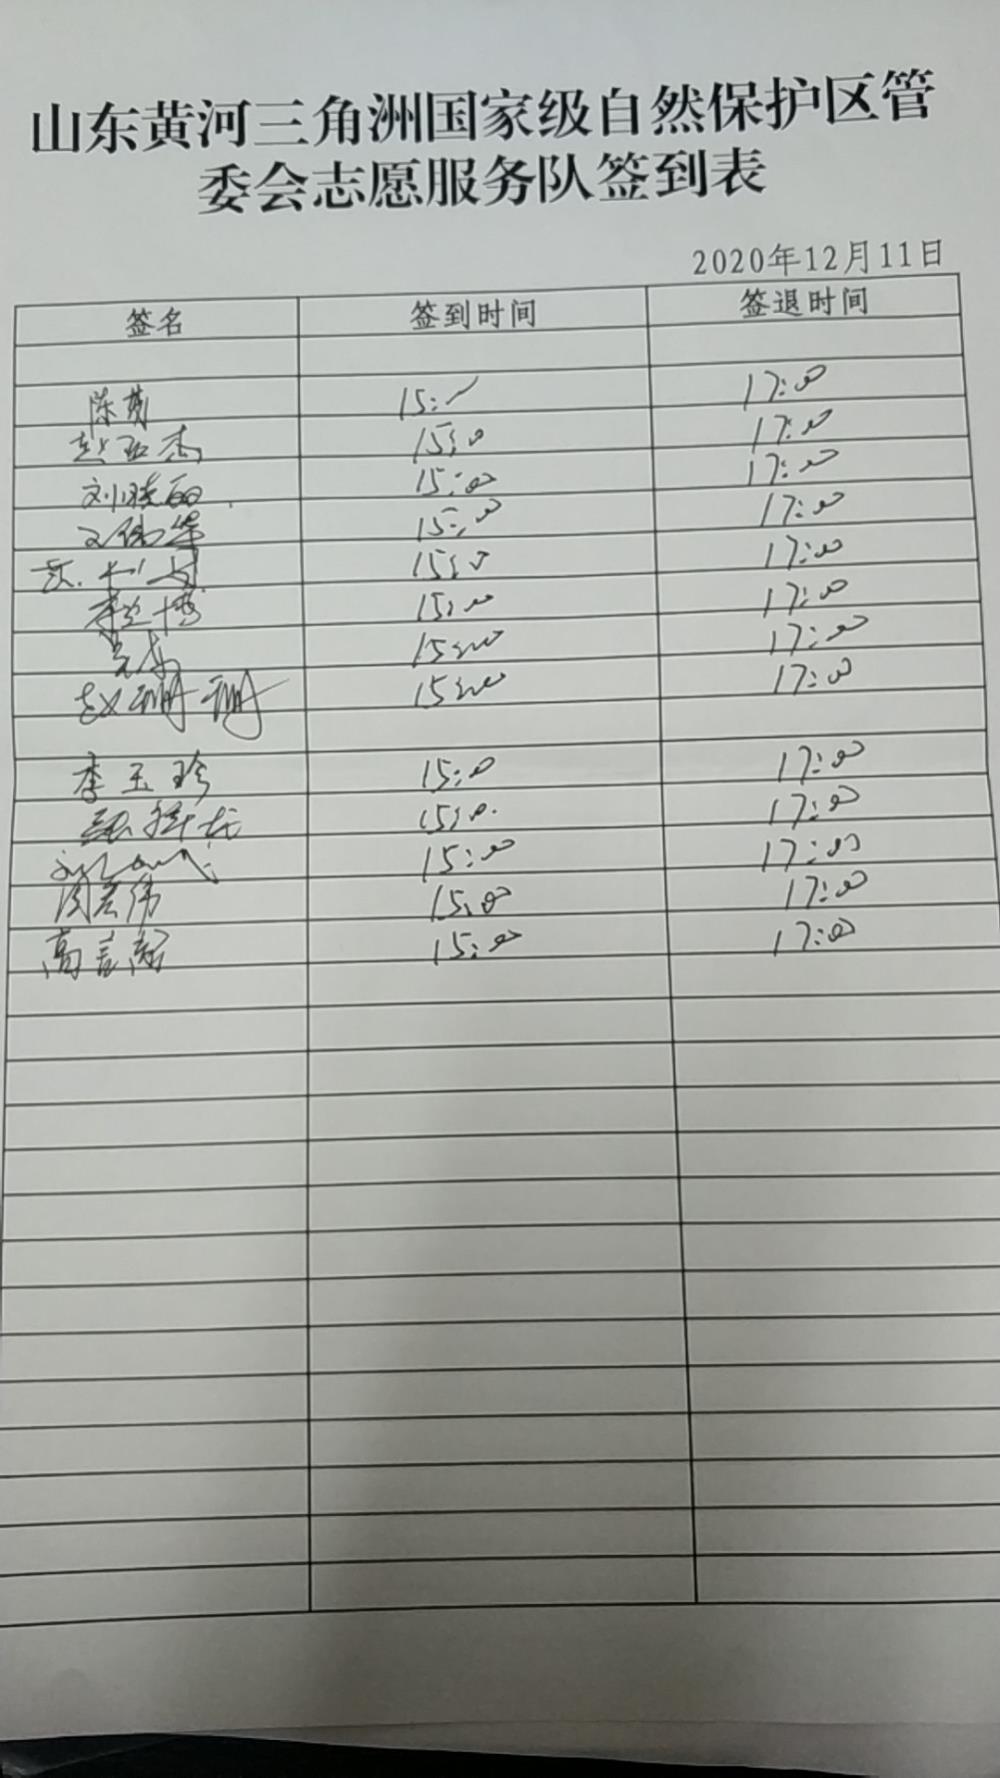 山东黄河三角洲国家级自然保护区管
委会志愿服务队签到表
2020年12月11日
签名 签到时间 签退时间
陈 15: 17:00
赵亚杰 15:00 17:00
刘晓丽 15:00 17:00
王伟华 15:00 17:00
15:00 17:00
李兰博 15:00 17:00
15:00 17:00
赵珊珊 15:00 17:00
李玉珍 15:00 17:00
15:00 17:00
15:00 17:00
周宏伟 15:00 17:00
高言 15:00 17:00